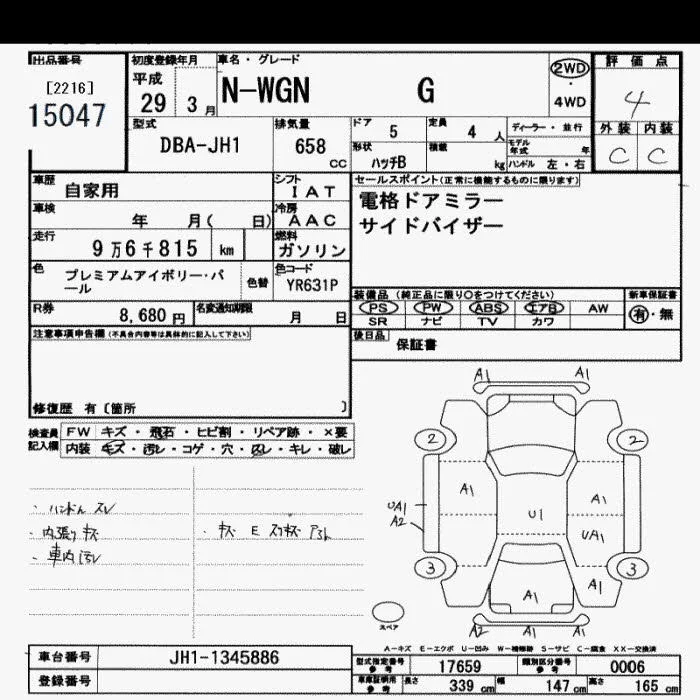 出品番号 初度登録年月 車名・グレード 評価点
[2216] 平成 2WD
15047 29 3月 N-WGN G ・4WD 4
型式 排気量 ドア 5 定員 4人 ディーラー・並行 外装 内装
DBA-JH1 658 cc 形状 ハッチB 積載 kg モデル年式 年 ハンドル 左・右 C C
車歴 自家用 シフト IAT セールスポイント(正常に機能するものに限ります)
車検 年 月( 日) 冷房 AAC 電格ドアミラー
走行 9万6千815 km 燃料 ガソリン サイドバイザー
色 プレミアムアイボリー・パール 色替 色コード YR631P
装備品 (純正品に限り○をつけてください) 新車保証書
R券 8,680円 名変通知期限 月 日 PS PW ABS エアB AW 有・無
SR ナビ TV カワ
注意事項申告欄(不具合内容等は具体的に記入して下さい) 後日品 保証書
修復歴 有〔箇所 〕
検査員記入欄 FW キズ・飛石・ヒビ割・リペア跡・×要
内装 キズ・汚レ・コゲ・穴・凹レ・キレ・破レ
・ハンドル スレ
・内張り キズ
・車内 汚レ
・キズ E スリキズ
A1 A1
2 2
A1 A1
UA1 U1 UA1
A2
3 3
A1 A1
A2 A1 A1
スペア
A-キズ E-エクボ U-凹み W-補修跡 S-サビ C-腐食 XX-交換済
車台番号 JH1-1345886 型式指定番号 参考 17659 類別区分番号 参考 0006
登録番号 車庫証明用 参考 長さ 339 cm 幅 147 cm 高さ 165 cm